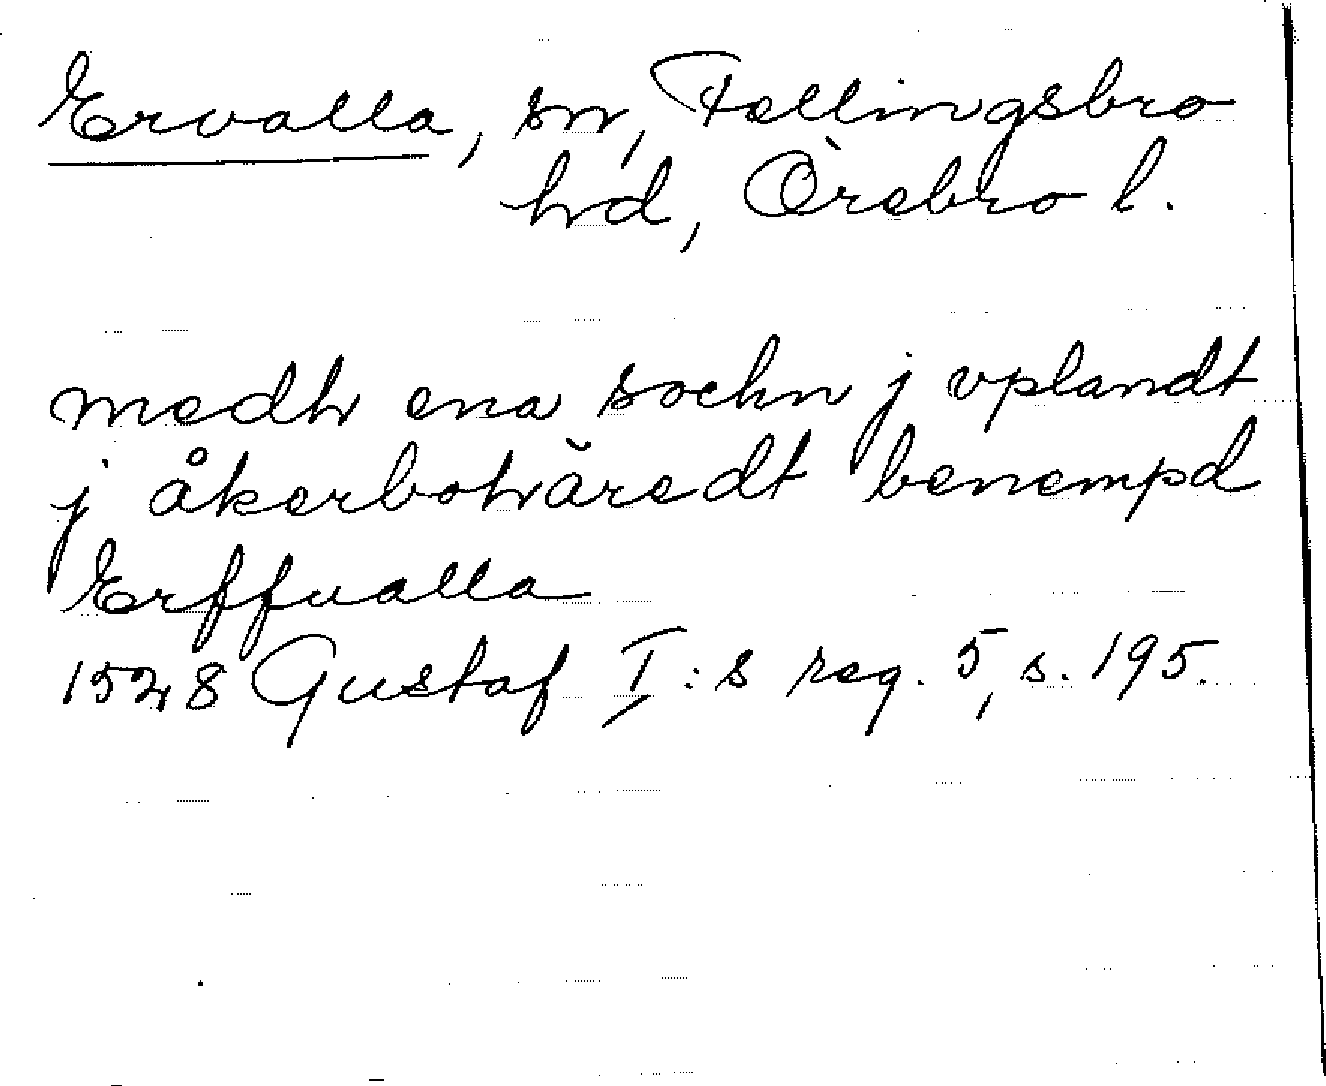 Ervalla, sn, Fellingsbro
hd, Örebro l.
medh ena sochn j vplandt
j åkerbohäredt benempd
Erffualla
1528 Gustaf I:s reg. 5, s. 195.